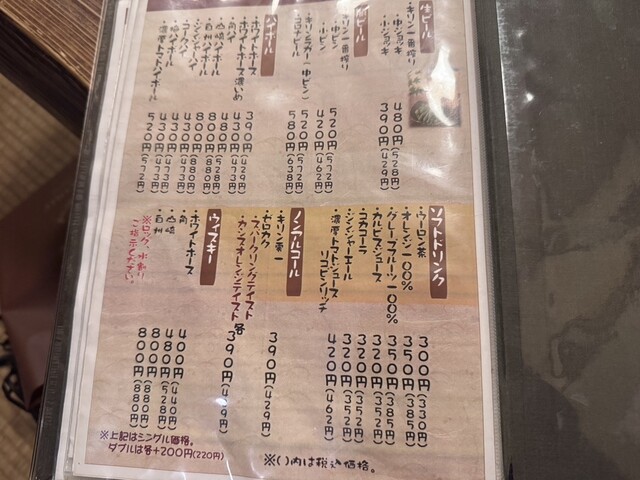 生ビール
・キリン一番搾り
・中ジョッキ 480円(528円)
・小ジョッキ 390円(429円)
瓶ビール
キリン一番搾り
・中ビン 520円(572円)
・小ビン 420円(462円)
・キリンラガー(中ビン) 520円(572円)
・コロナビール 580円(638円)
ハイボール
・ホワイトホース 390円(429円)
・ホワイトホース濃いめ 430円(473円)
・角ハイ 480円(528円)
・山崎ハイボール 800円(880円)
・白州ハイボール 800円(880円)
・ジンジャーハイ 430円(473円)
・コークハイ 430円(473円)
・梅ハイボール 430円(473円)
・濃厚トマトハイボール 520円(572円)
ソフトドリンク
・ウーロン茶 300円(330円)
・オレンジ一〇〇% 350円(385円)
・グレープフルーツ一〇〇% 350円(385円)
・カルピスジュース 320円(352円)
・コカコーラ 320円(352円)
・ジンジャーエール 320円(352円)
・濃厚トマトジュース リコピンリッチ 420円(462円)
ノンアルコール
・キリン零一 390円(429円)
・ゼロカク
・スパークリングテイスト
・カシスオレンジテイスト 各390円(429円)
ウィスキー
・ホワイトホース 400円(440円)
・角 480円(528円)
・山崎 800円(880円)
・白州 800円(880円)
※ロック、水割り
ご指示ください。
※上記はシングル価格。
ダブルは各+200円(220円)
※()内は税込価格。